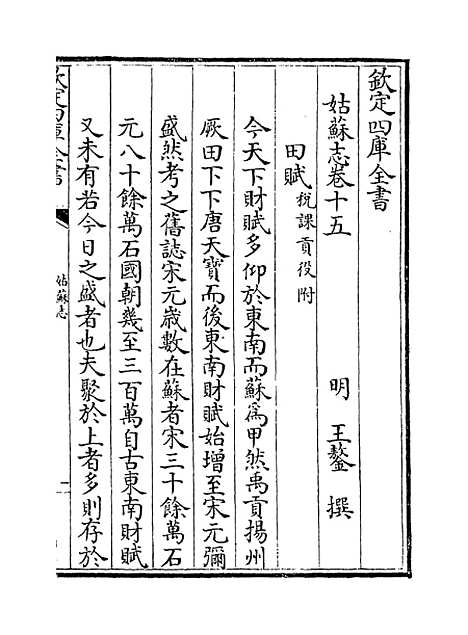 欽定四庫全書
姑蘇志卷十五
明 王鏊 撰
田賦 稅課貢役附
今天下財賦多仰於東南而蘇為甲然禹貢揚州
厥田下下唐天寶而後東南財賦始增至宋元彌
盛然考之舊誌宋元歲數在蘇者宋三十餘萬石
元八十餘萬石國朝幾至三百萬自古東南財賦
又未有若今日之盛者也夫聚於上者多則存於
欽定四庫全書
姑蘇志